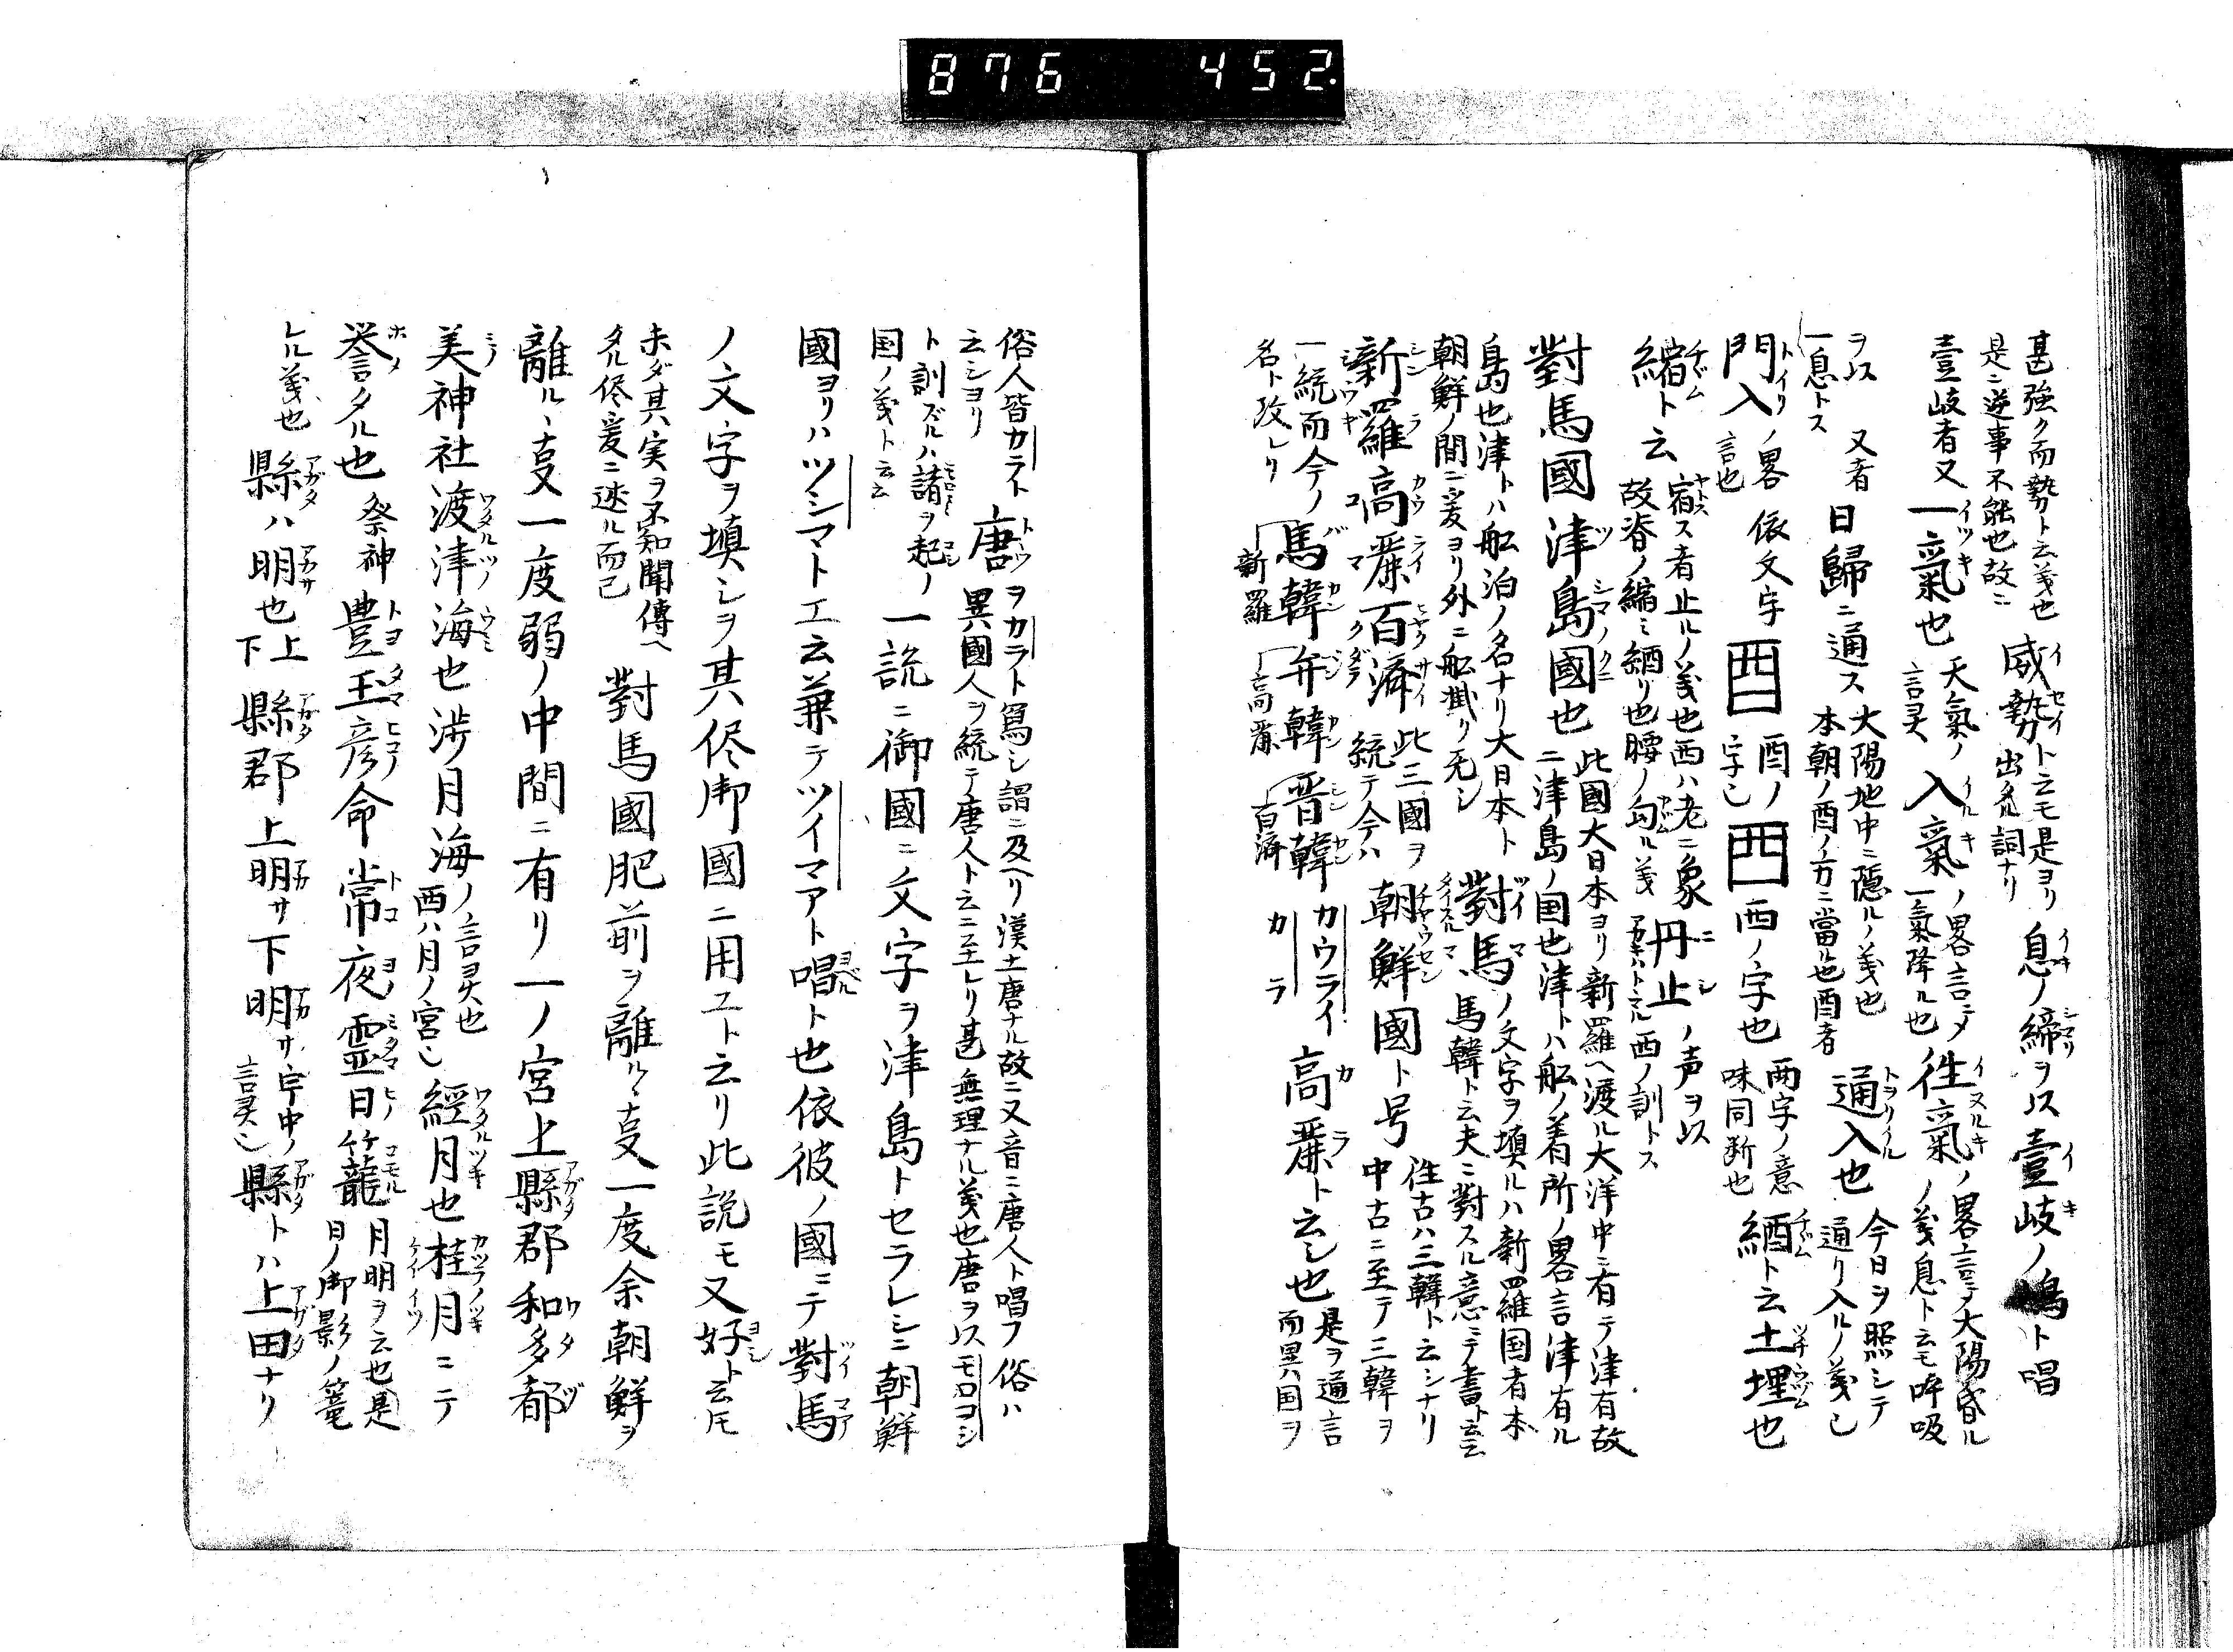 876 452.
甚強ク而勢ト云義也
是ニ逆事不能也故ニ
威勢ト云モ是ヨリ
出タル詞ナリ
息ノ締ヲ以壹岐ノ嶋ト唱
壹岐者又一氣也
天氣ノ
言灵
入氣ノ畧言ニテ
一氣降ル也
徃氣ノ畧言ニテ大陽昏ル
ノ義息ト云モ呼吸
ヲ以
一息トス
又者日歸ニ通ス
大陽地中ニ隠ルノ義也
本朝ノ酉ノ方ニ當ル也酉者
通入也
今日ヲ照シテ
通リ入ルノ義也
門入ノ畧
言也
依文字酉
酉ノ
字也
西西ノ字也
両字ノ意
味同断也
綇ト云土埋也
縮ト云
宿ス者止ルノ義也西ハ老ニ象
故脊ノ縮ミ綇リ也腰ノ勾ル義
丹止ノ声ヲ以
西ノ訓トス
對馬國津島國也
此國大日本ヨリ新羅ヘ渡ル大洋中ニ有テ津有故
ニ津島ノ国也津トハ舩ノ着所ノ畧言津有ル
島也津トハ舩泊ノ名ナリ大日本ト
朝鮮ノ間ニ爰ヨリ外ニ舩掛リ无シ
對馬ノ文字ヲ填ルハ新羅国者本
馬韓ト云夫ニ對スル意ニテ書ト云云
新羅高麗百濟
此三國ヲ
統テ今ハ
朝鮮國ト号
徃古ハ三韓ト云シナリ
中古ニ至テ三韓ヲ
一統而今ノ
名ト改レリ
馬韓弁韓晋韓
新羅
高麗
百濟
カウライ
カラ
高麗ト云シ也
是ヲ通言
而異国ヲ
俗人皆カラト
云シヨリ
唐ヲカラト冩シ謂ニ及ヘリ漢土唐ナル故ニ又音ニ唐人ト唱フ俗ハ
異國人ヲ統テ唐人ト云ニ至レリ甚無理ナル義也唐ヲ以モロコシ
ト訓ズルハ諸ヲ起ノ
国ノ義ト云云
一説ニ御國ニ文字ヲ津島トセラレシニ朝鮮
國ヨリハツシマトエ云兼テツイマアト唱ト也依彼ノ國ニテ對馬
ノ文字ヲ填シヲ其侭御國ニ用ユト云リ此説モ又好ト云𪜈
未ダ其実ヲ不知聞傳ヘ
タル侭爰ニ述ル而已
對馬國肥前ヲ離ルヽ𫝆一度余朝鮮ヲ
離ルヽ𫝆一度弱ノ中間ニ有リ一ノ宮上縣郡和多都
美神社渡津海也渉月海
ノ言灵也
西ハ月ノ宮也
經月也桂月ニテ
誉タル也
祭神
豊玉彦命常夜霊日竹籠
月明ヲ云也是
日ノ御影ノ篭
レル義也
縣ハ明也上
下
縣郡上明サ下明サ宇中ノ
言灵也
縣トハ上田ナリ